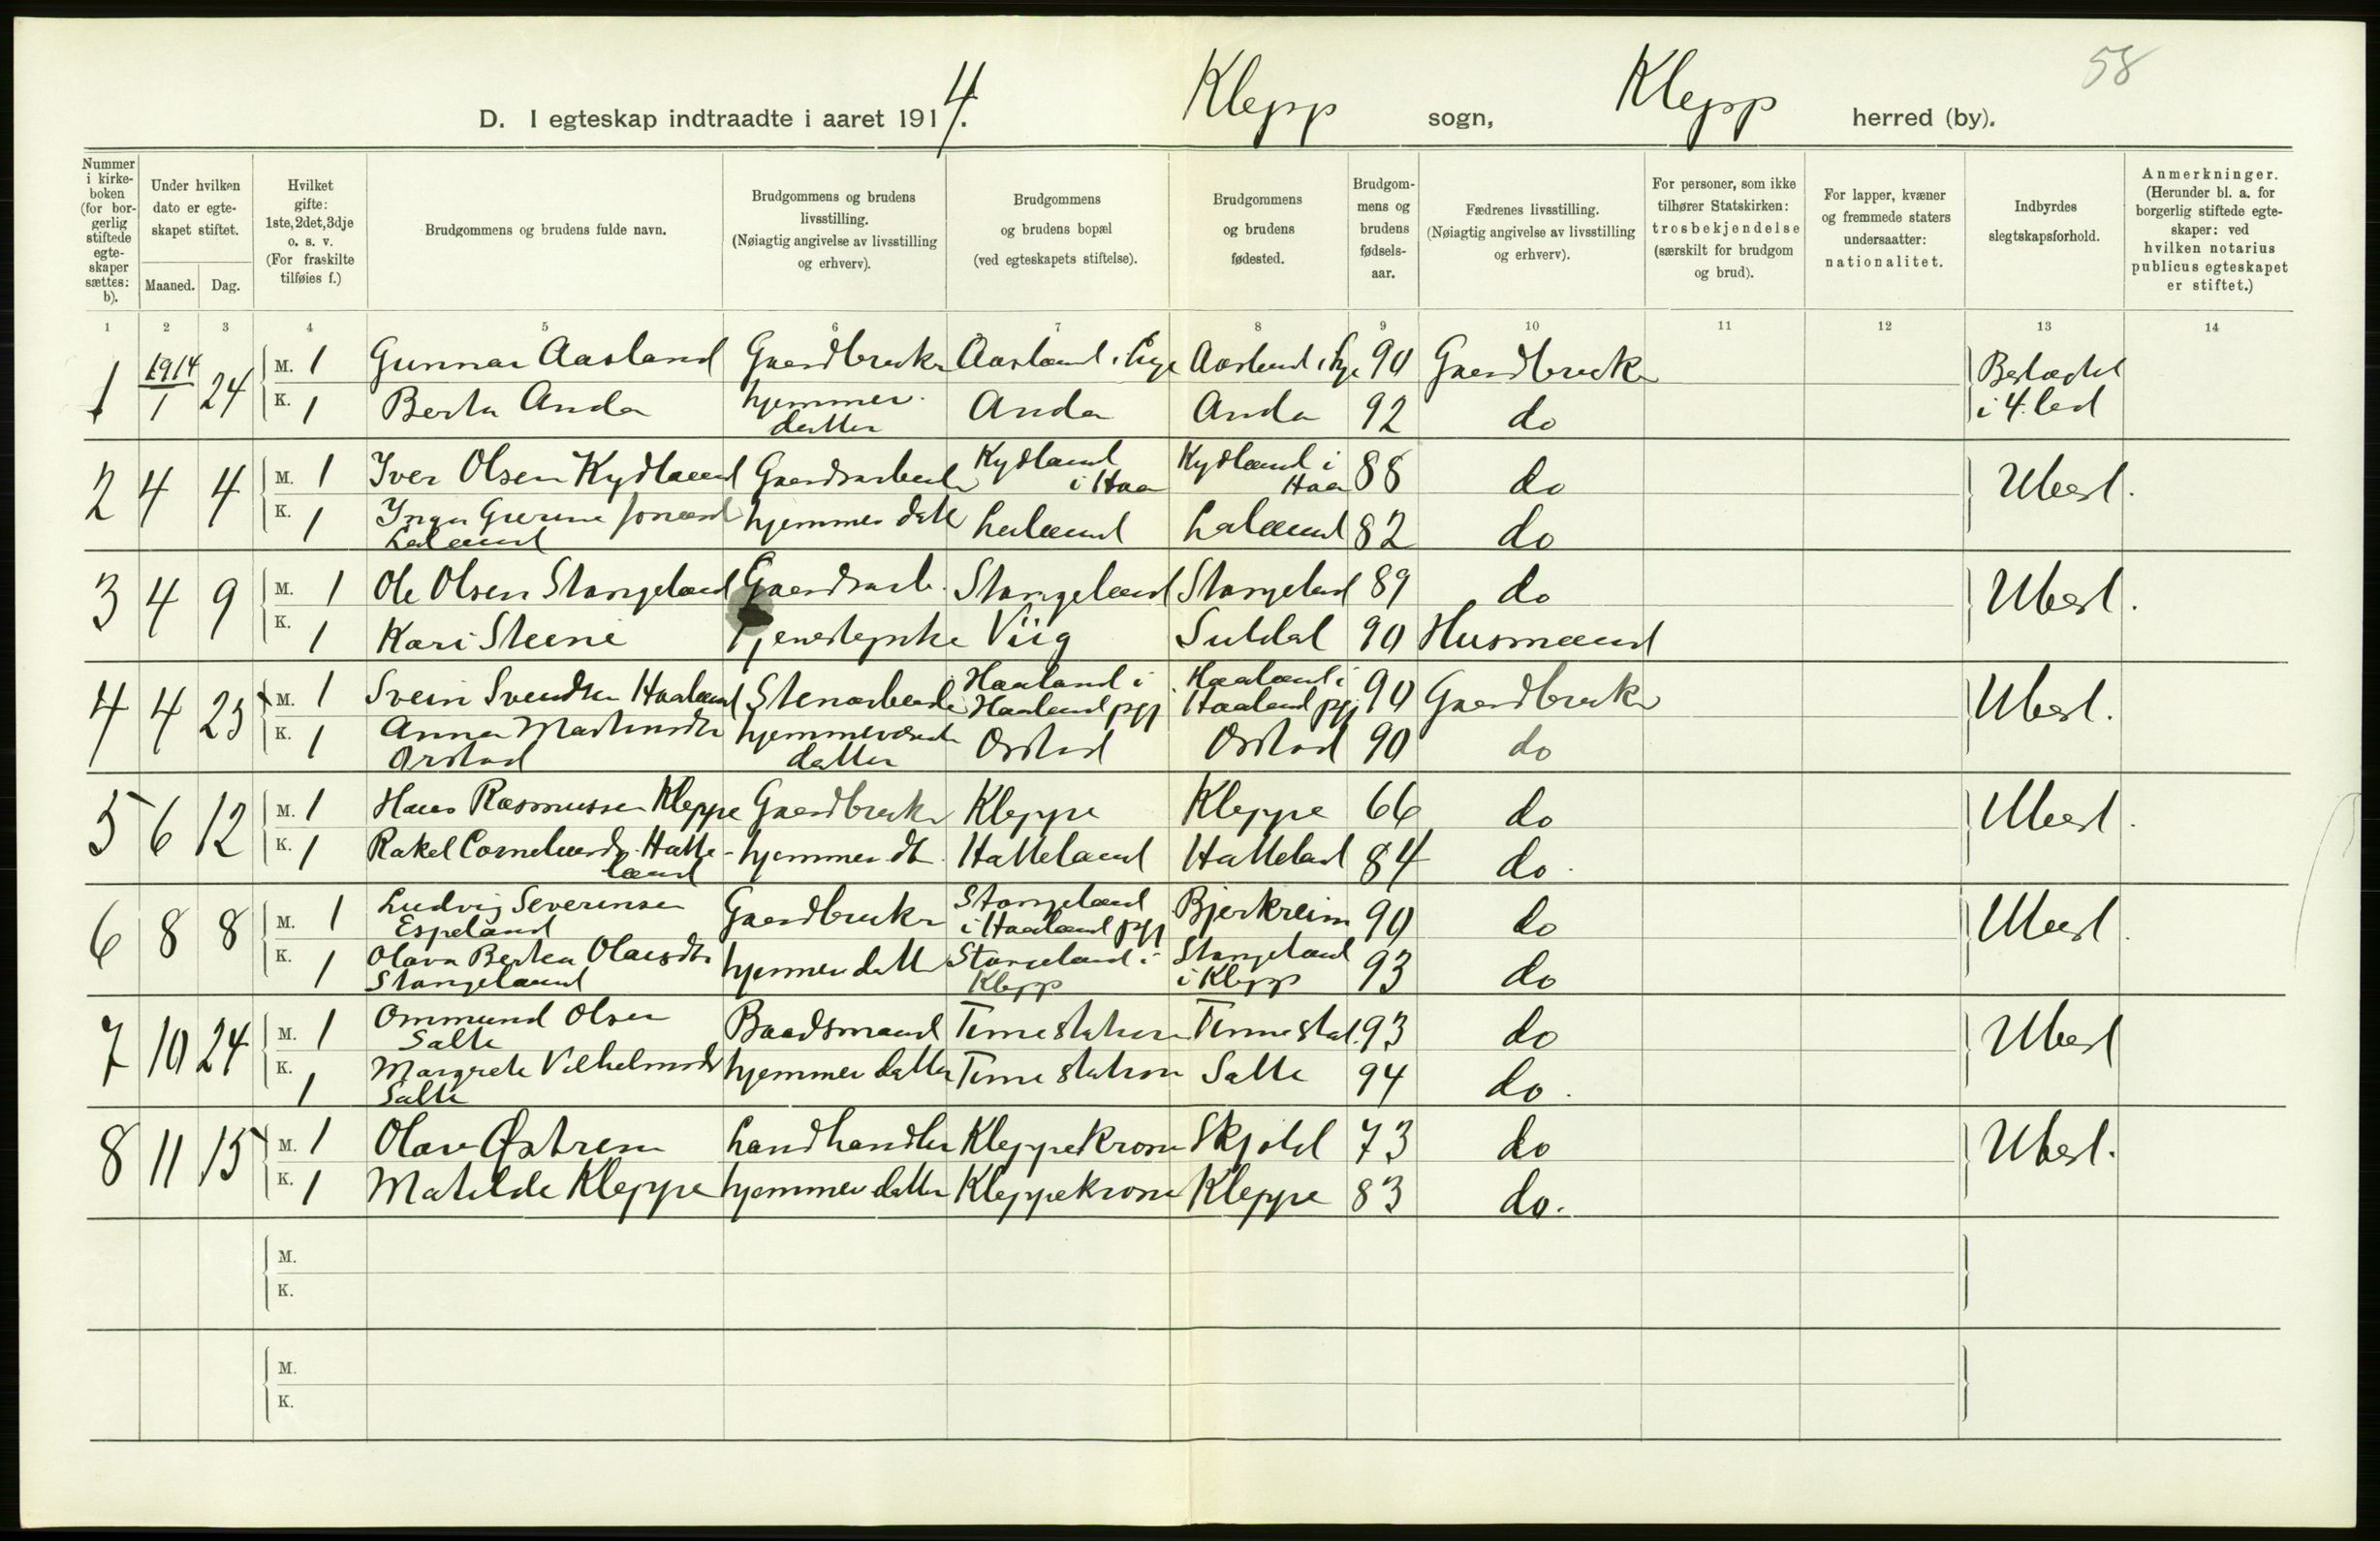 58
D. I egteskap indtraadte i aaret 1914. Klepp sogn, Klepp herred (by).
Nummer i kirke-boken (for bor-gerlig stiftede egte-skaper sættes: b).
Under hvilken dato er egte-skapet stiftet.
Maaned. Dag.
Hvilket gifte: 1ste, 2det, 3dje o. s. v. (For fraskilte tilføies f.)
Brudgommens og brudens fulde navn.
Brudgommens og brudens livsstilling. (Nøiagtig angivelse av livsstilling og erhverv).
Brudgommens og brudens bopæl (ved egteskapets stiftelse).
Brudgommens og brudens fødested.
Brudgom-mens og brudens fødsels-aar.
Fædrenes livsstilling. (Nøiagtig angivelse av livsstilling og erhverv).
For personer, som ikke tilhører Statskirken: trosbekjendelse (særskilt for brudgom og brud).
For lapper, kvæner og fremmede staters undersaatter: nationalitet.
Indbyrdes slegtskapsforhold.
Anmerkninger. (Herunder bl. a. for borgerlig stiftede egte-skaper: ved hvilken notarius publicus egteskapet er stiftet.)
1 2 3 4 5 6 7 8 9 10 11 12 13 14
1 1914 1 24 M. 1 Gunnar Aasland Gaardbruker Aasland i Lye Aasland i Lye 90 Gaardbruker Beslægtet i 4. led
K. 1 Berta Anda hjemmev. datter Anda Anda 92 do
2 4 4 M. 1 Iver Olsen Kydland Gaardsarbeider Kydland i Haa Kydland i Haa 88 do Ubesl.
K. 1 Inga Gurine Laland hjemmev datt Laland Laland 82 do
3 4 9 M. 1 Ole Olsen Stangeland Gaardsarb. Stangeland Stangeland 89 do Ubesl.
K. 1 Kari Steine Tjenestepike Viig Suldal 90 Husmand
4 4 25 M. 1 Svein Svendsen Haaland Stenarbeider Haaland i Haaland pgj Haaland i Haaland pgj 90 Gaardbruker Ubesl.
K. 1 Anna Martinsdtr Orstad hjemmeværende datter Orstad Orstad 90 do
5 6 12 M. 1 Hans Rasmussen Kleppe Gaardbruker Kleppe Kleppe 66 do Ubesl.
K. 1 Rakel Corneliusdtr. Hatte-land hjemmev dt. Hatteland Hatteland 84 do.
6 8 8 M. 1 Ludvig Severinsen Espeland Gaardbruker Stangeland i Haaland pgj Bjerkreim 90 do Ubesl.
K. 1 Olava Bertea Olausdtr Stangeland hjemmev datter Stangeland i Klepp Stangeland i Klepp 93 do
7 10 24 M. 1 Ommund Olsen Salte Baadsmand Time station Time stat. 93 do Ubesl
K. 1 Margrete Vilhelmsdtr Salte hjemmev datter Time station Salte 94 do.
8 11 15 M. 1 Olav Østrem Landhandler Kleppekrossen Skjold 73 do Ubesl.
K. 1 Matilde Kleppe hjemmev datter Kleppekrossen Kleppe 83 do.
M.
K.
M.
K.